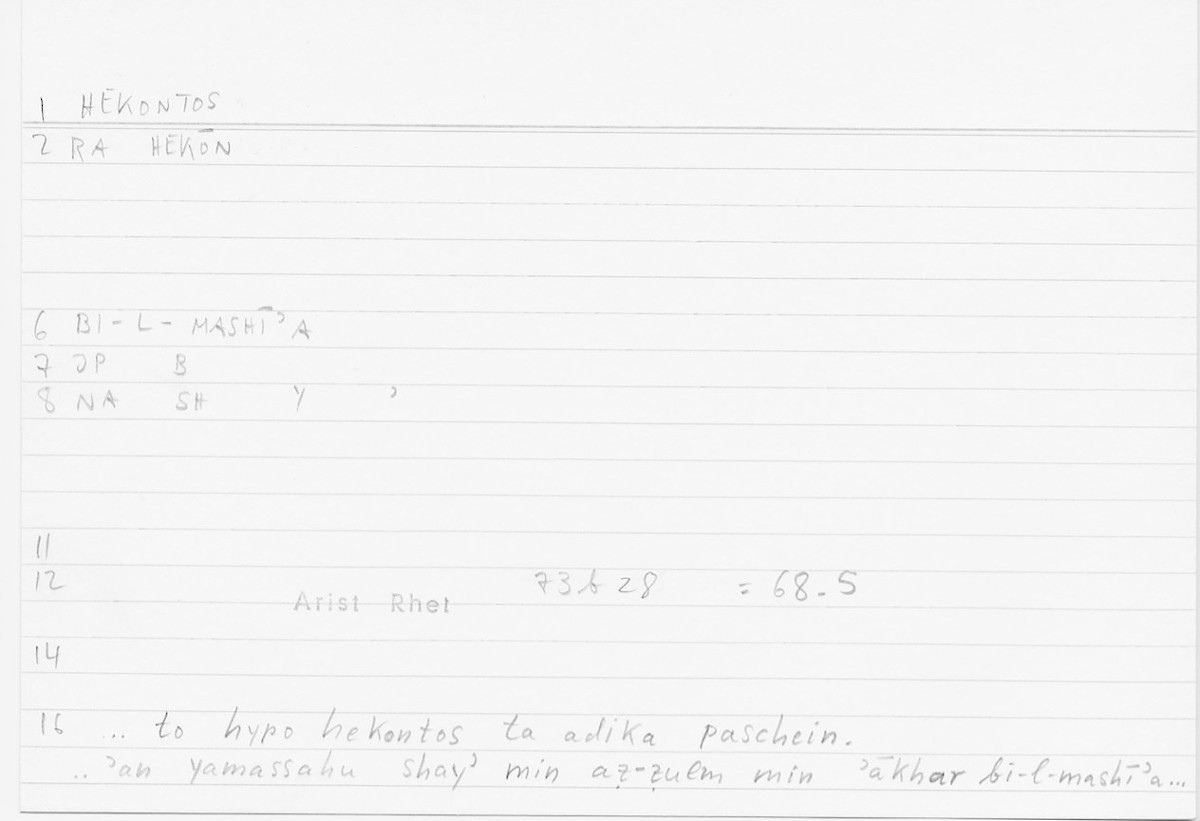 1 HEKONTOS
2 RA HEKŌN
6 BI-L-MASHĪʾA
7 JP B
8 NA SH Y ʾ
11
12 73b28 = 68.5
Arist Rhet
14
16 ... to hypo hekontos ta adika paschein.
.. ʾan yamassahu shayʾ min aẓ-ẓulm min ʾākhar bi-l-mashīʾa...